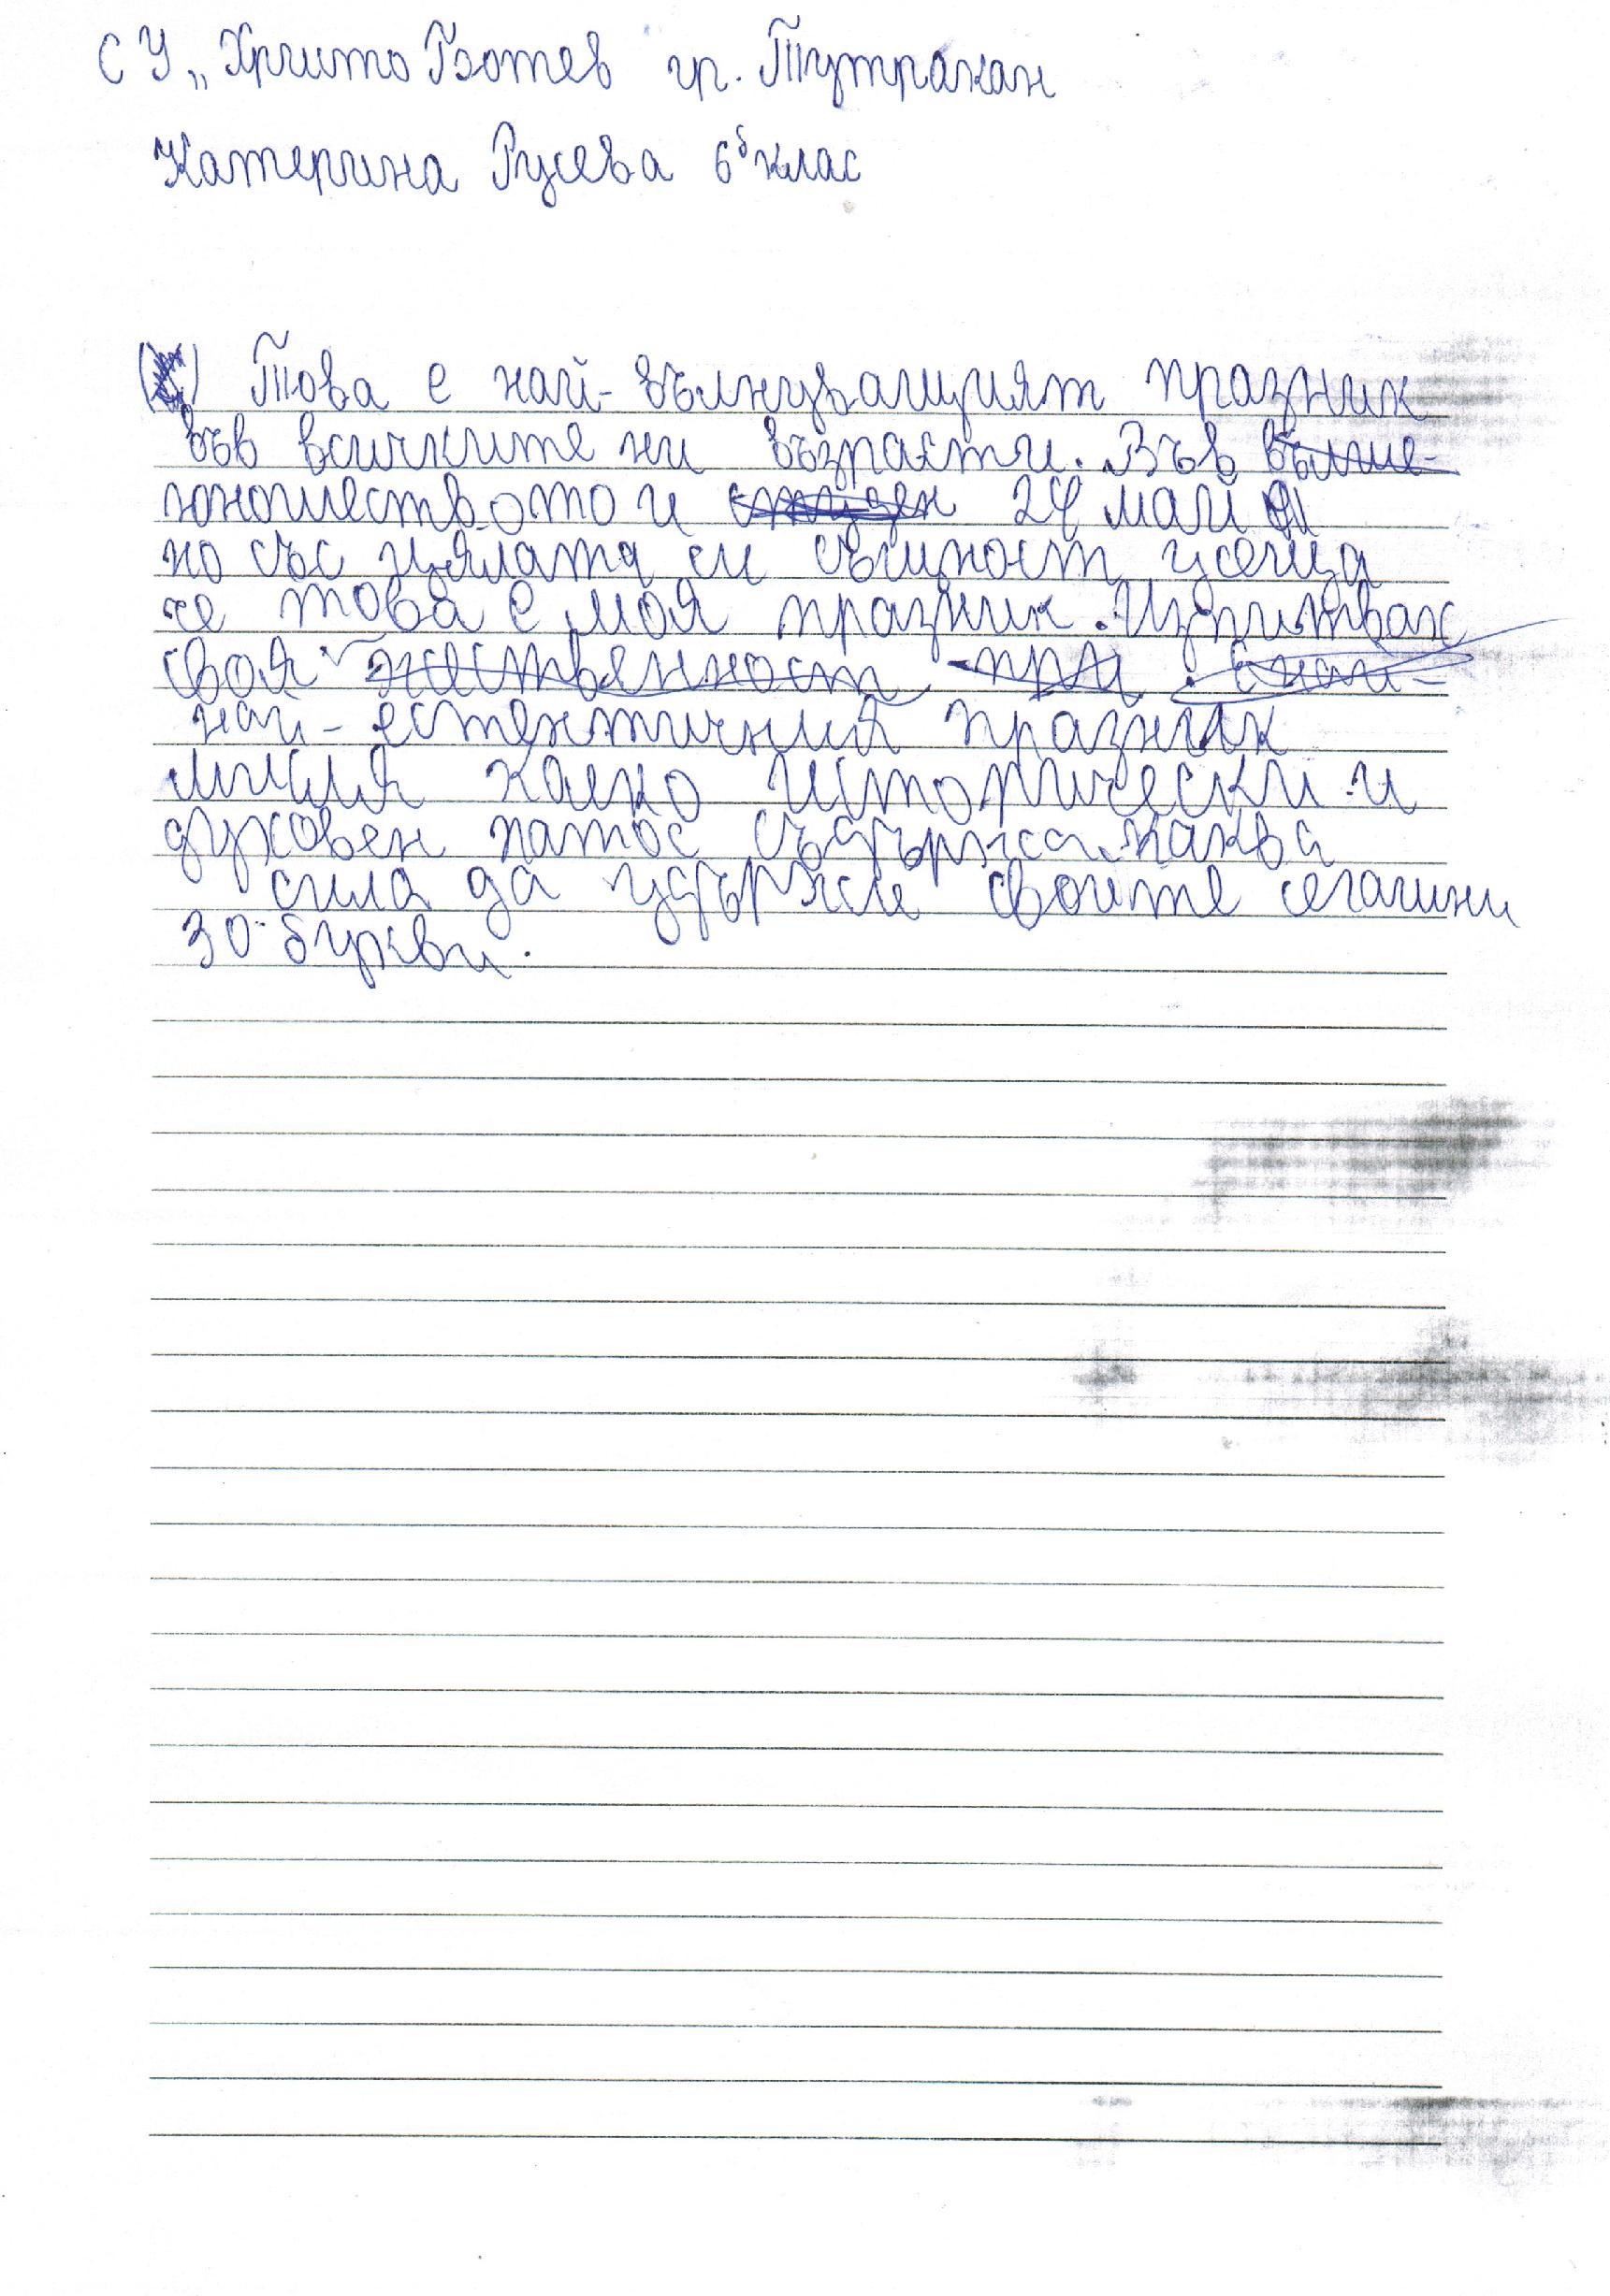 СУ „Христо Ботев гр. Тутракан
Катерина Русева 6б клас
Това е най-вълнуващият празник
във всичките ни възрасти. Във
юношеството и 24 май
но със цялата си същност усеща
че това е моя празник. Изпитвах
своя
най-естентичния празник
мисля каско исторически и
духовен патос съдържа каква
сила да удържи своите сегашни
30 букви.